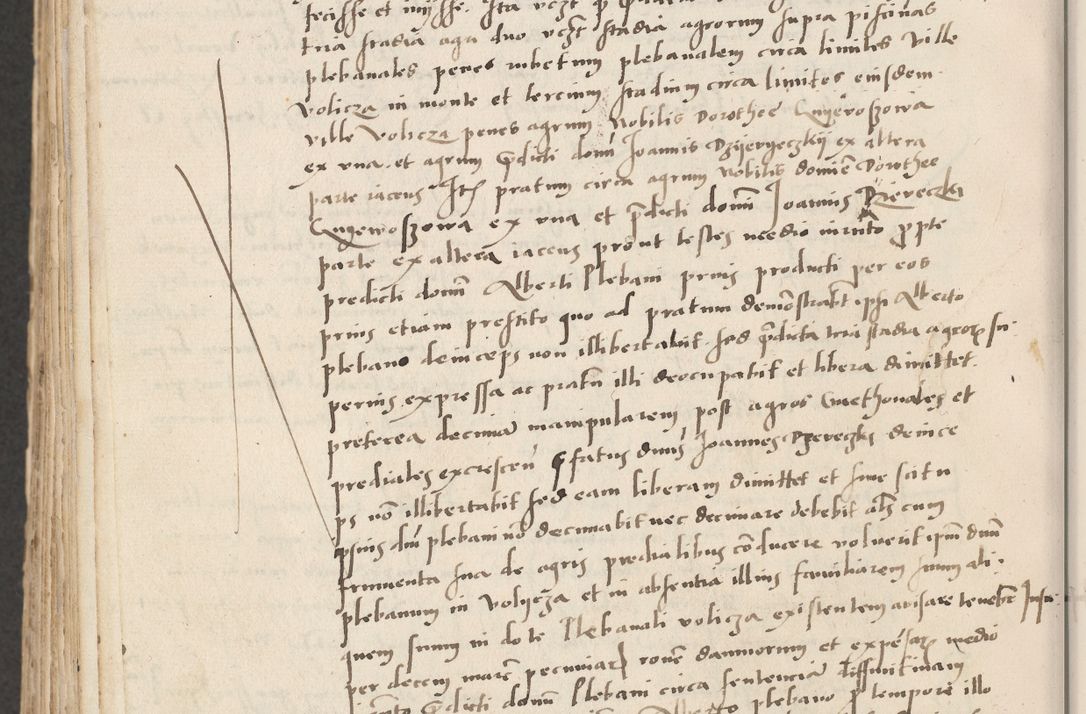 fecisse et
tria stadia agri duo vczt stadia agrorum supra piscinas
plebanales penes rubetum plebanalem circa limites ville
Volicza in monte et tercium stadium circa limites eiusdem
ville Volicza penes agrum Nobilis Dorothee Gnyewoszowa
ex vna et agrum p̄dicti domī Joannis Dzijeryeczkij ex altera
parte iacens Itē pratum circa agrum Nobilis domīe Dorothee
Gnyewoszowa ex vna et p̄dicti domī Joannis Dzereczki
parte ex altera iacens prout testes medio iuramto p pte
predicti domī Alberti Plebani prius producti per eos
prius etiam prestito quo ad pratum demonstrabt ipsi Alberto
plebano deinceps non illibertabit sed p̄dicta tria stadia agror su
perius expressa ac pratū illi deocupabit et libera dimittet
preterea decimā manipularem post agros Cmethonales et
prediales excrescen̄ p̄fatus dnus Joannes Dzereczki deince
ps nō illibertabit sed eam liberam dimittet et sine scitu
ipsius dni plebani nō decimabit nec decimare debebit als cum
frumenta sua de agris predialibus conducere voluerit ipm dnm
plebanum in Volijcza et in absentia illius familiarem suum ali
quem suum in dote Plebanali volicza existentem avisare tenebit
per decem marc pecuniar rone damnorum et expēsar medio
p̄dicti domī Plebani circa sententiā diffinitivam
plebano p tempore illo